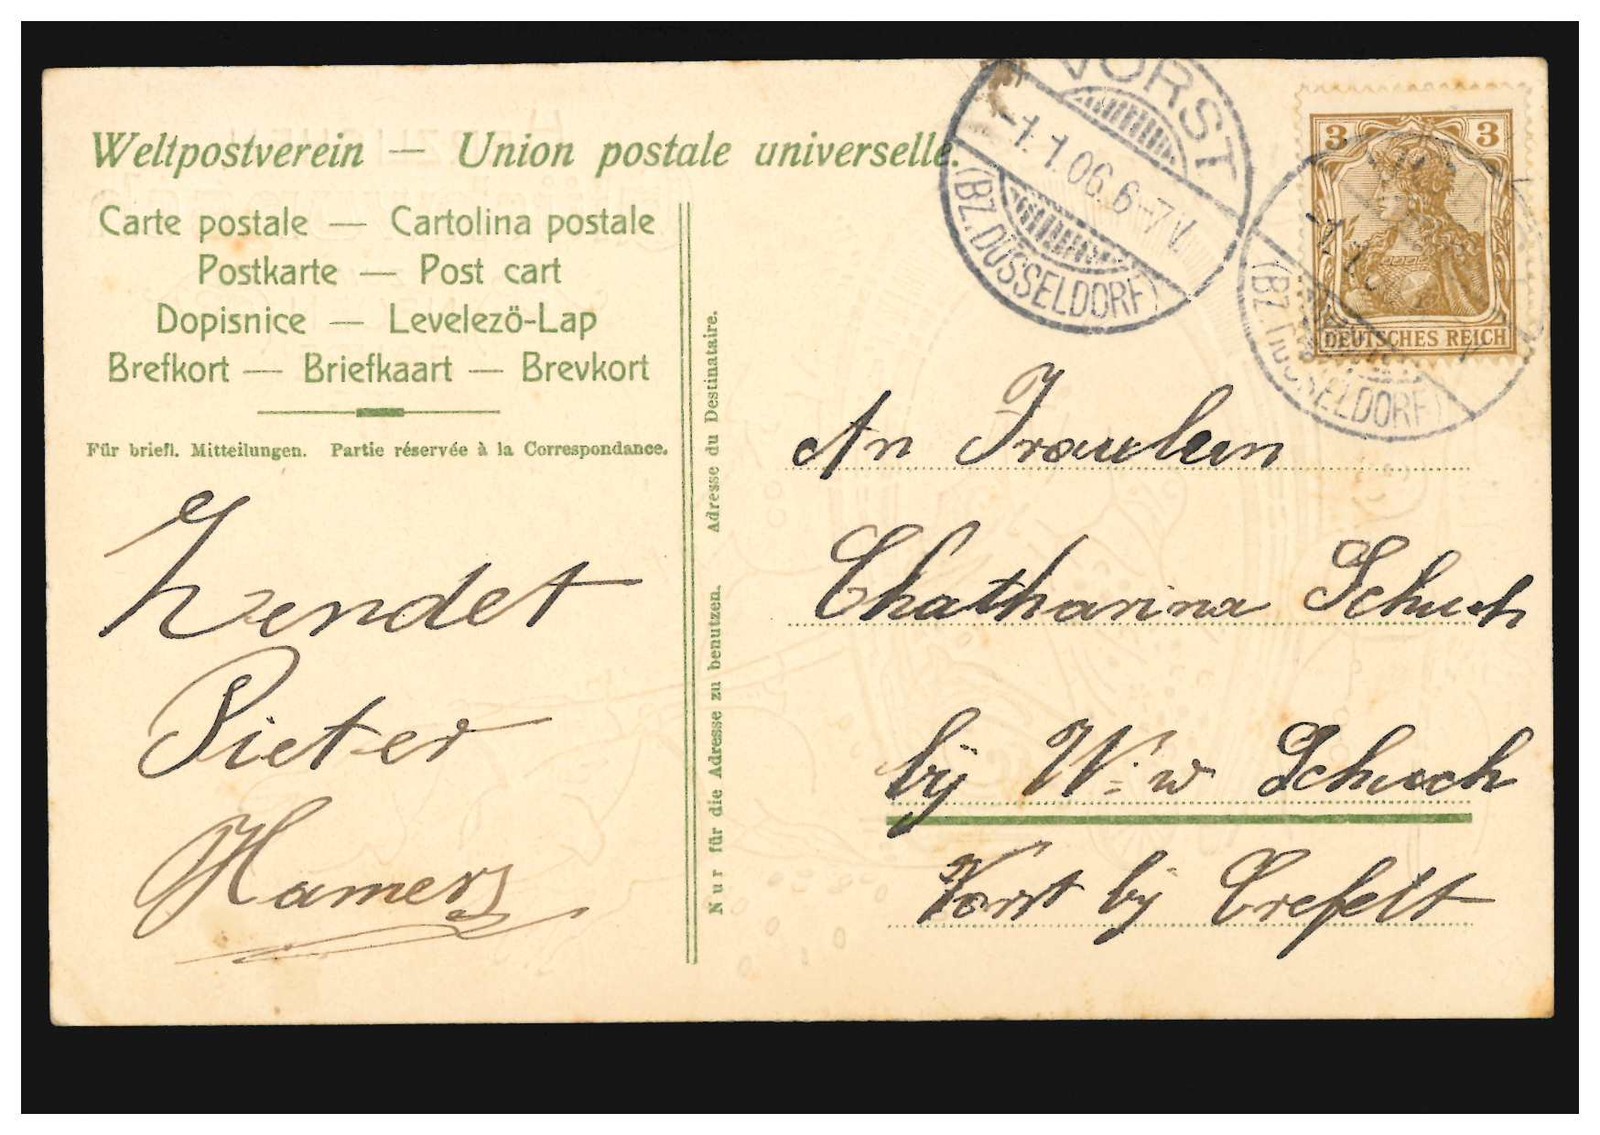 Weltpostverein — Union postale universelle.
Carte postale — Cartolina postale
Postkarte — Post cart
Dopisnice — Levelezö-Lap
Brefkort — Briefkaart — Brevkort
Für briefl. Mitteilungen. Partie réservée à la Correspondance.
Zendet
Pieter
Hamers
Nur für die Adresse zu benutzen. Adresse du Destinataire.
VORST
-1.1.06.6-7V.
(BZ. DÜSSELDORF)
3 3
DEUTSCHES REICH
(BZ. DÜSSELDORF)
An Fraulein
Chatharina Schuch
bij W: w Schuch
Vorst bij Crefelt